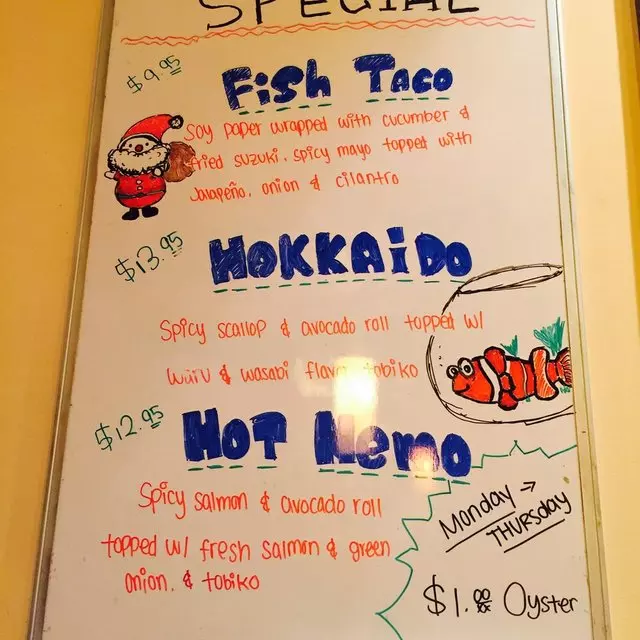 SPECIAL
$9.95
Fish Taco
Soy paper wrapped with cucumber &
fried suzuki. spicy mayo topped with
Jalapeño. onion & cilantro
$13.95
HOKKAiDO
Spicy scallop & avocado roll topped w/
waru & wasabi flavor tobiko
$12.95
HOT Nemo
Spicy salmon & avocado roll
topped w/ fresh salmon & green
onion. & tobiko
Monday →
THURSday
$1.00 Oyster